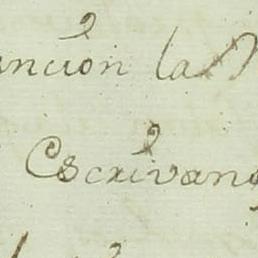 ncion la
Escrivan